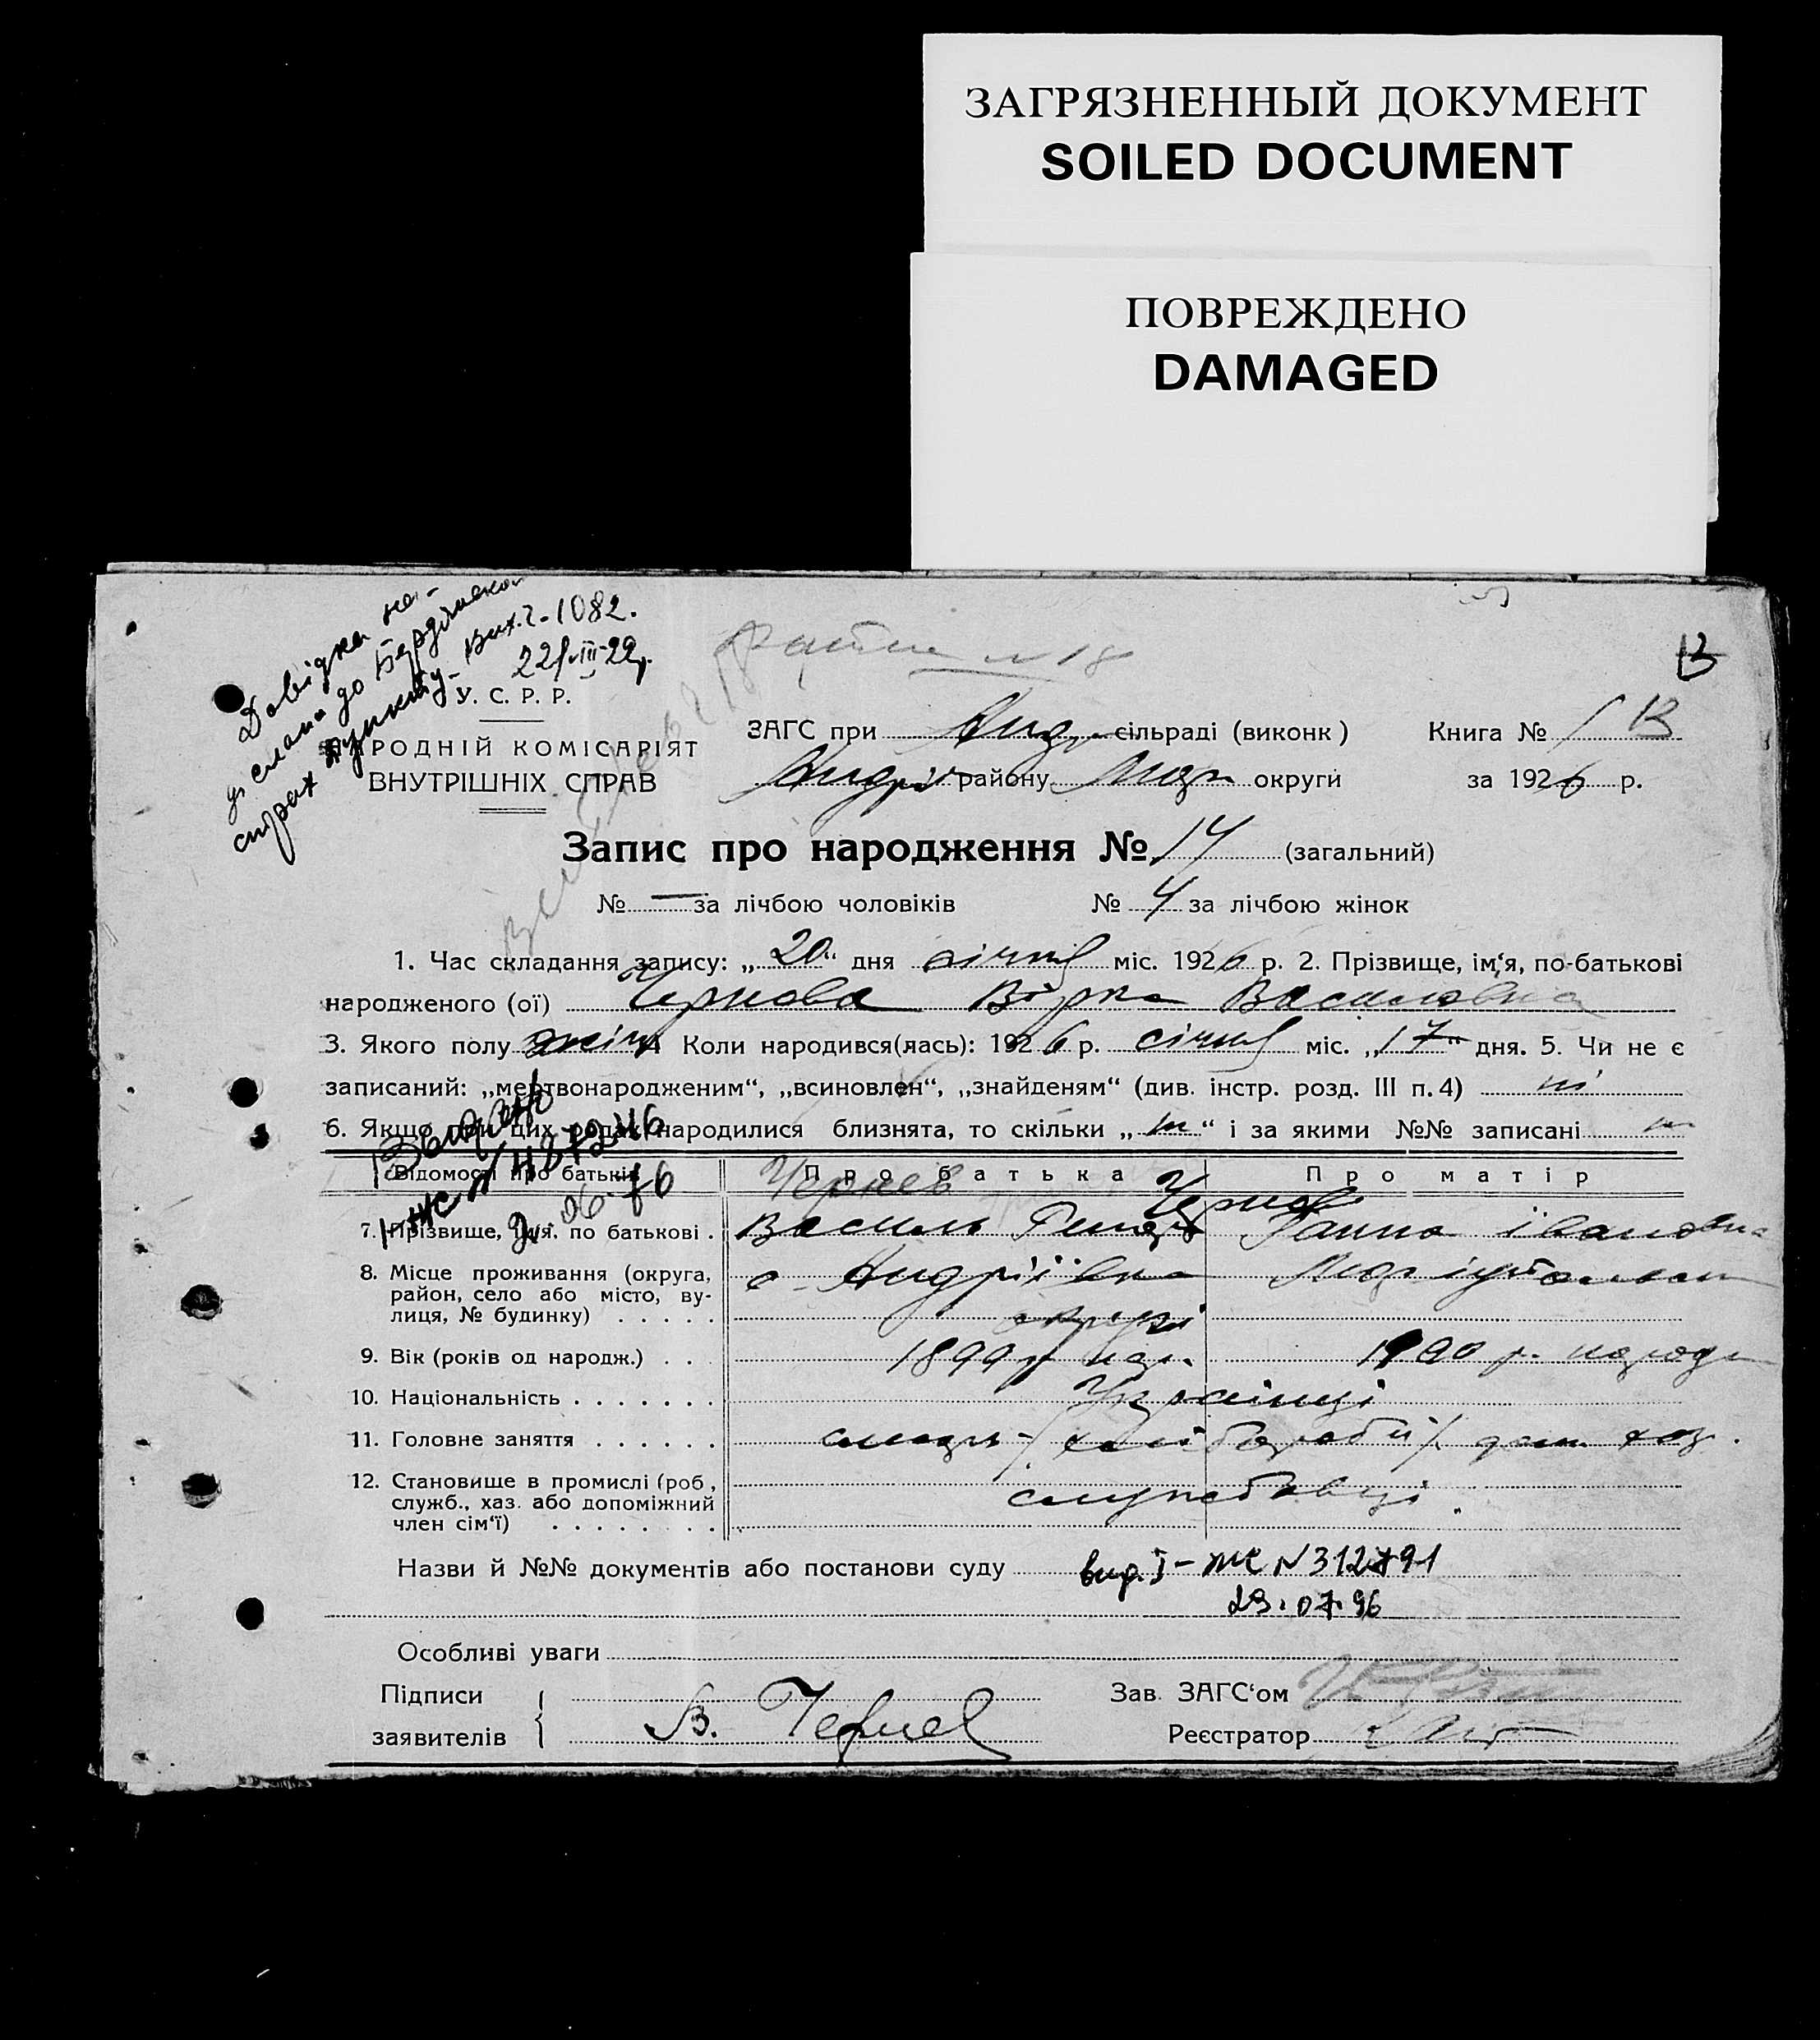 ЗАГРЯЗНЕННЫЙ ДОКУМЕНТ
SOILED DOCUMENT
ПОВРЕЖДЕНО
DAMAGED
Довідка на-
до
Вих. 1082.
У. С. Р. Р.
РОДНІЙ КОМІСАРІЯТ
ВНУТРІШНІХ СПРАВ
№ 18
13
ЗАГС при Андр сільраді (виконк) Книга № 13
Андрі району Мар округи за 1926 р.
Запис про народження № 14 (загальний)
№ — за лічбою чоловіків № 4 за лічбою жінок
1. Час складання запису: „20“ дня січня міс. 1926 р. 2. Прізвище, ім‘я, по-батькові
народженого (ої) Чернова Вірка Василовна
3. Якого полу жін 4 Коли народився(лась): 1926 р. січня міс. „17“ дня. 5. Чи не є
записаний: „мертвонародженим“, „всиновлен“, „знайденям“ (див. інстр. розд. III п. 4) ні
6. Якщо при цих родах народилися близнята, то скільки „ “ і за якими №№ записані
Відомості про батьків Про батька Про матір
Чернев
7. Прізвище, ім‘я, по батькові . Василь Чернова Ганна Івановна
8. Місце проживання (округа, район, село або місто, вулиця, № будинку) . . . . . с. Андріївка Маріупольськ
округи
9. Вік (років од народж.) . . . 1899 р нар. 1900 р. народ
10. Національність . . . . . . . Українці
11. Головне заняття . . . . . .
12. Становище в промислі (роб, служб., хаз. або допоміжний член сім‘ї) . . . . . . . . службовці.
Назви й №№ документів або постанови суду вид. I-ЖС N 312791
29.07.96
Особливі уваги
Підписи заявителів В. Чернев
Зав. ЗАГС‘ом
Реєстратор